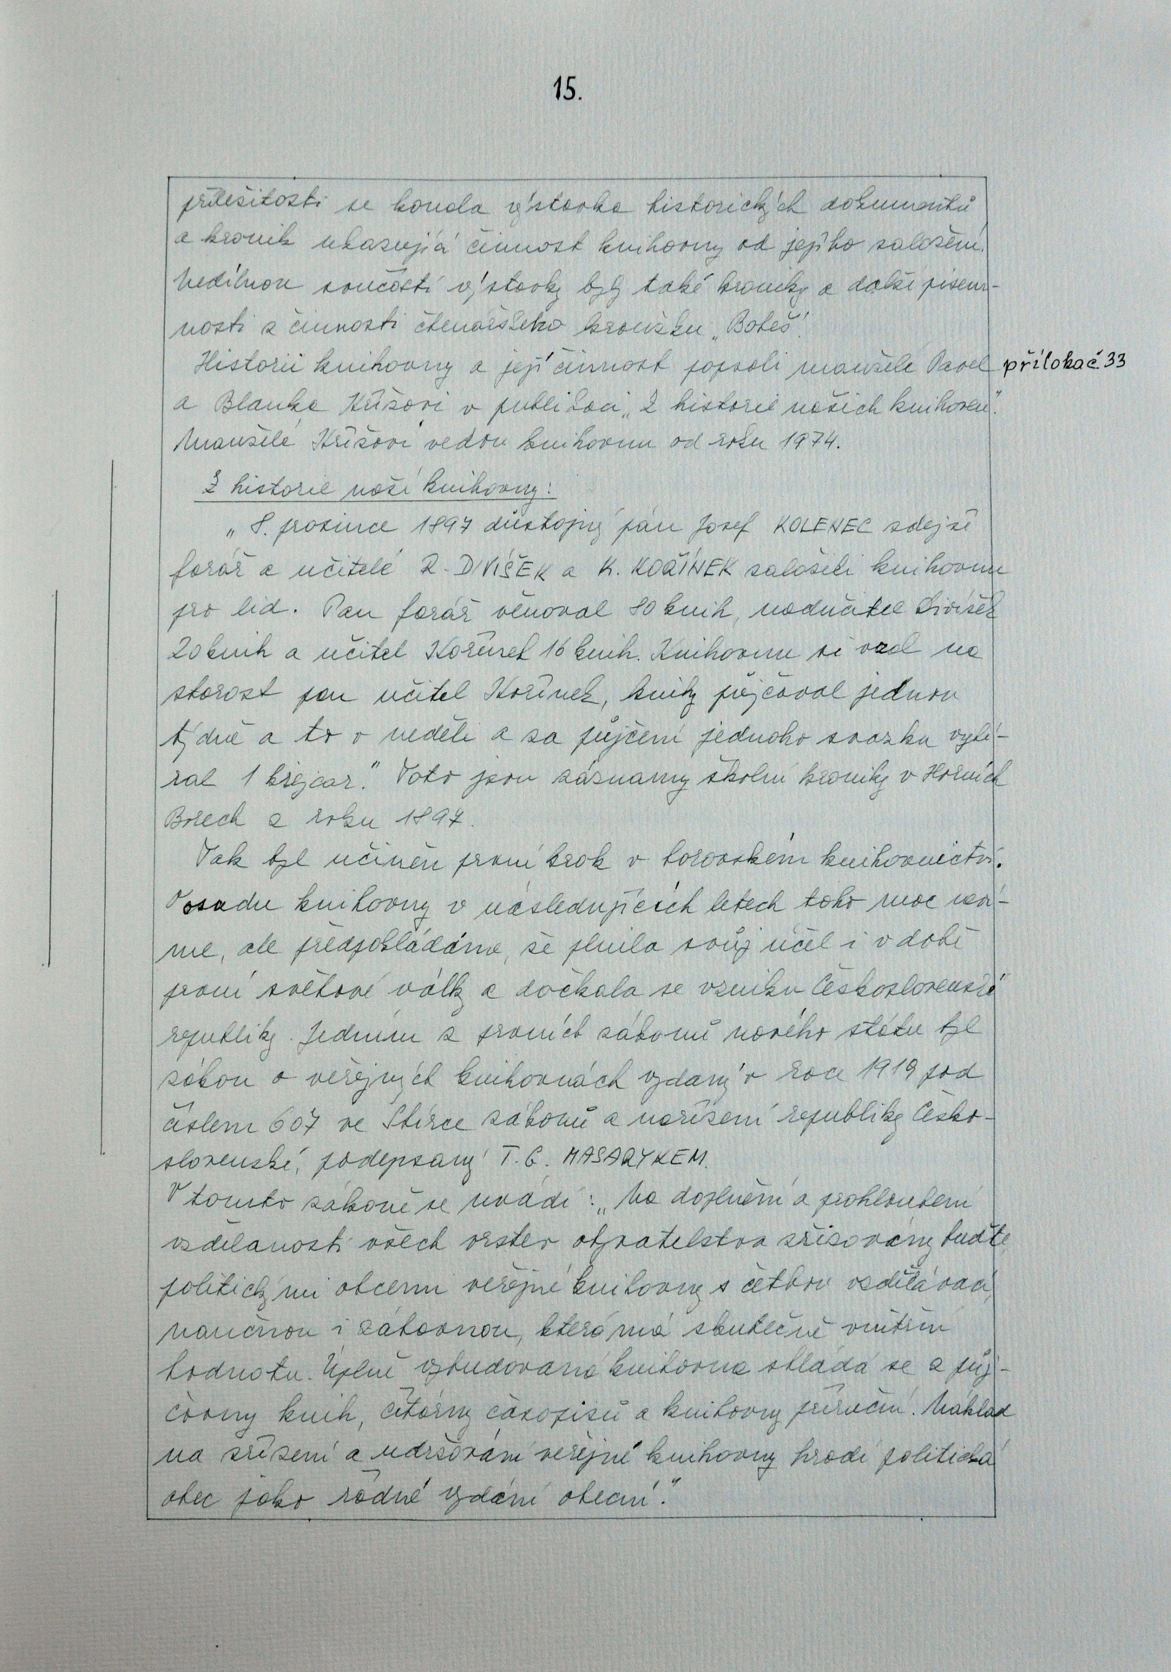 15.
příležitosti se konala výstavka historických dokumentů
a kronik ukazující činnost knihovny od jejího založení.
Nedílnou součástí výstavky byly také kroniky a další písem-
nosti z činnosti čtenářského kroužku „Boteš".
Historii knihovny a její činnost popsali manželé Pavel
příloha č. 33
a Blanka Křížovi v publikaci „Z historie našich knihoven".
Manželé Křížovi vedou knihovnu od roku 1974.
Z historie naší knihovny:
„8. prosince 1897 důstojný pán Josef KOLENEC zdejší
farář a učitelé R. DIVÍŠEK a K. KOŘÍNEK založili knihovnu
pro lid. Pan farář věnoval 80 knih, nadučitel Divíšek
20 knih a učitel Kořínek 16 knih. Knihovnu si vzal na
starost pan učitel Kořínek, knihy půjčoval jednou
týdně a to v neděli a za půjčení jednoho svazku vybí-
ral 1 krejcar." Toto jsou záznamy školní kroniky v Horních
Borech z roku 1897.
Tak byl učiněn první krok v borovském knihovnictví.
O osudu knihovny v následujících letech toho moc neví-
me, ale předpokládáme, že plnila svůj účel i v době
první světové války a dočkala se vzniku Československé
republiky. Jedním z prvních zákonů nového státu byl
zákon o veřejných knihovnách vydaný v roce 1919 pod
číslem 607 ve Sbírce zákonů a nařízení republiky Česko-
slovenské, podepsaný T. G. MASARYKEM.
V tomto zákoně se uvádí: „Na doplnění a prohloubení
vzdělanosti všech vrstev obyvatelstva zřizovány buďte
politickými obcemi veřejné knihovny s četbou vzdělávací,
naučnou i zábavnou, která má skutečně vnitřní
hodnotu. Úplně vybudovaná knihovna skládá se z půj-
čovny knih, čítárny časopisů a knihovny příruční. Náklad
na zřízení a udržování veřejné knihovny hradí politická
obec jako řádné vydání obecní."